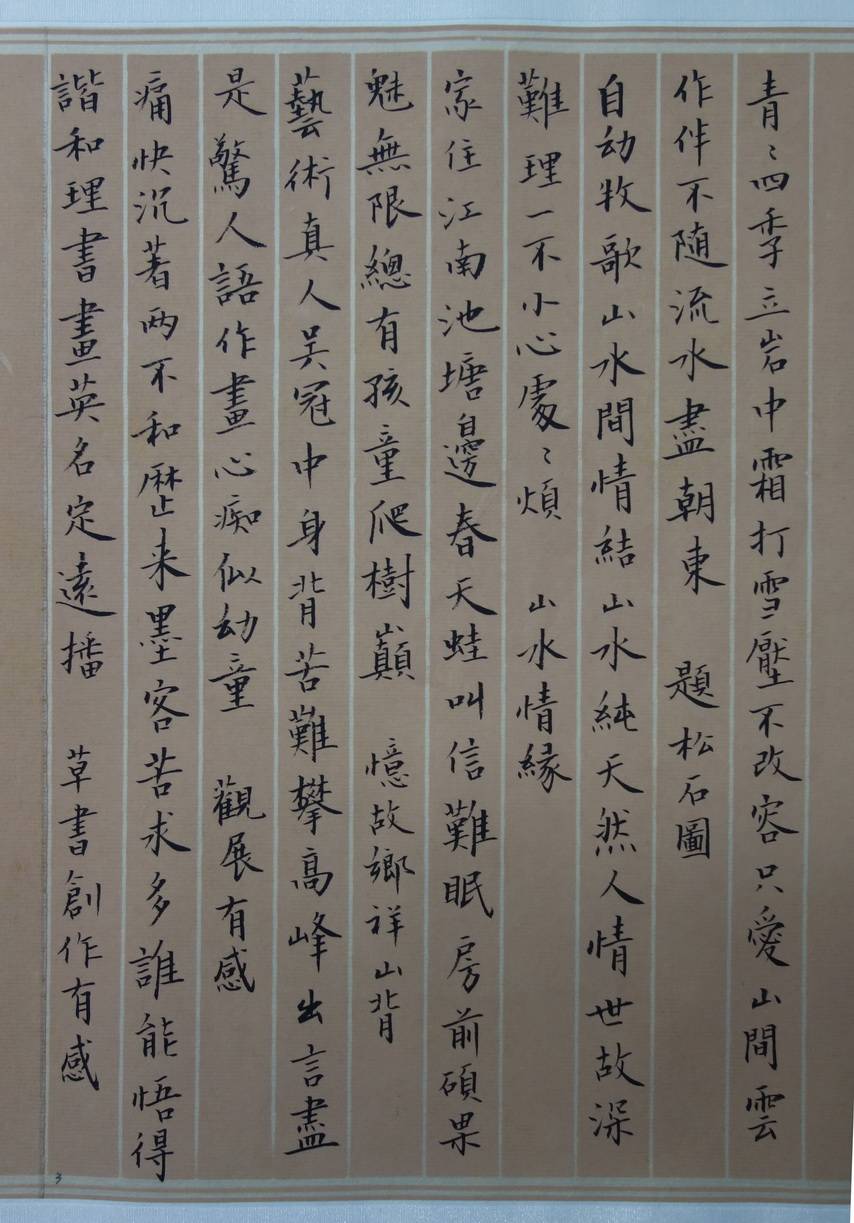 青〻四季立岩中霜打雪壓不改容只愛山間雲
作伴不随流水盡朝東 題松石圖
自动牧歌山水間情結山水純天然人情世故深
難理一不小心處〻煩 山水情緣
家住江南池塘自邊春天蛙叫信難眠房前碩果
魅無限總有孩童爬樹巔 憶故鄉祥山背
藝術真人吴冠中身背苦難攀高峰出言盡
是驚人語作畫心痴似幼童 觀展有感
痛快沉著两不和歷来墨客苦求多誰能悟得
諧和理書畫英名定遠播 草書創作有感
3